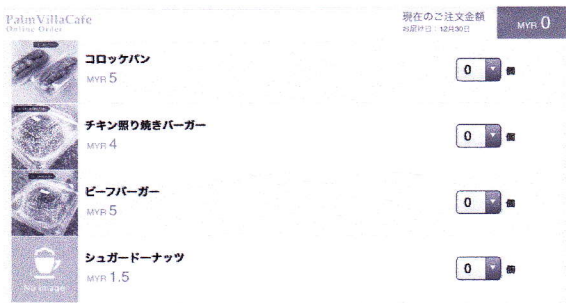 PalmVillaCafe
Online Order
現在のご注文金額
お届け日：12月30日
MYR 0
コロッケパン
MYR 5
0 個
チキン照り焼きバーガー
MYR 4
0 個
ビーフバーガー
MYR 5
0 個
シュガードーナッツ
MYR 1.5
0 個
No Image